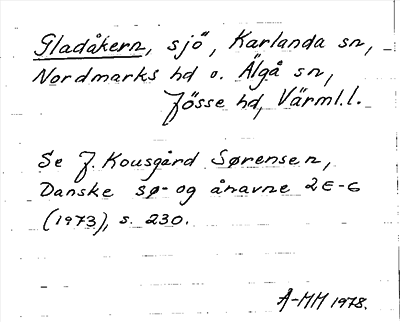 Gladåkern, sjö, Karlanda sn,
Nordmarks hd o. Älgå sn,
Jösse hd, Värml.l.
Se J. Kousgård Sørensen,
Danske sø- og ånavne 2 E-G
(1973), s. 230.
A-MM 1978.